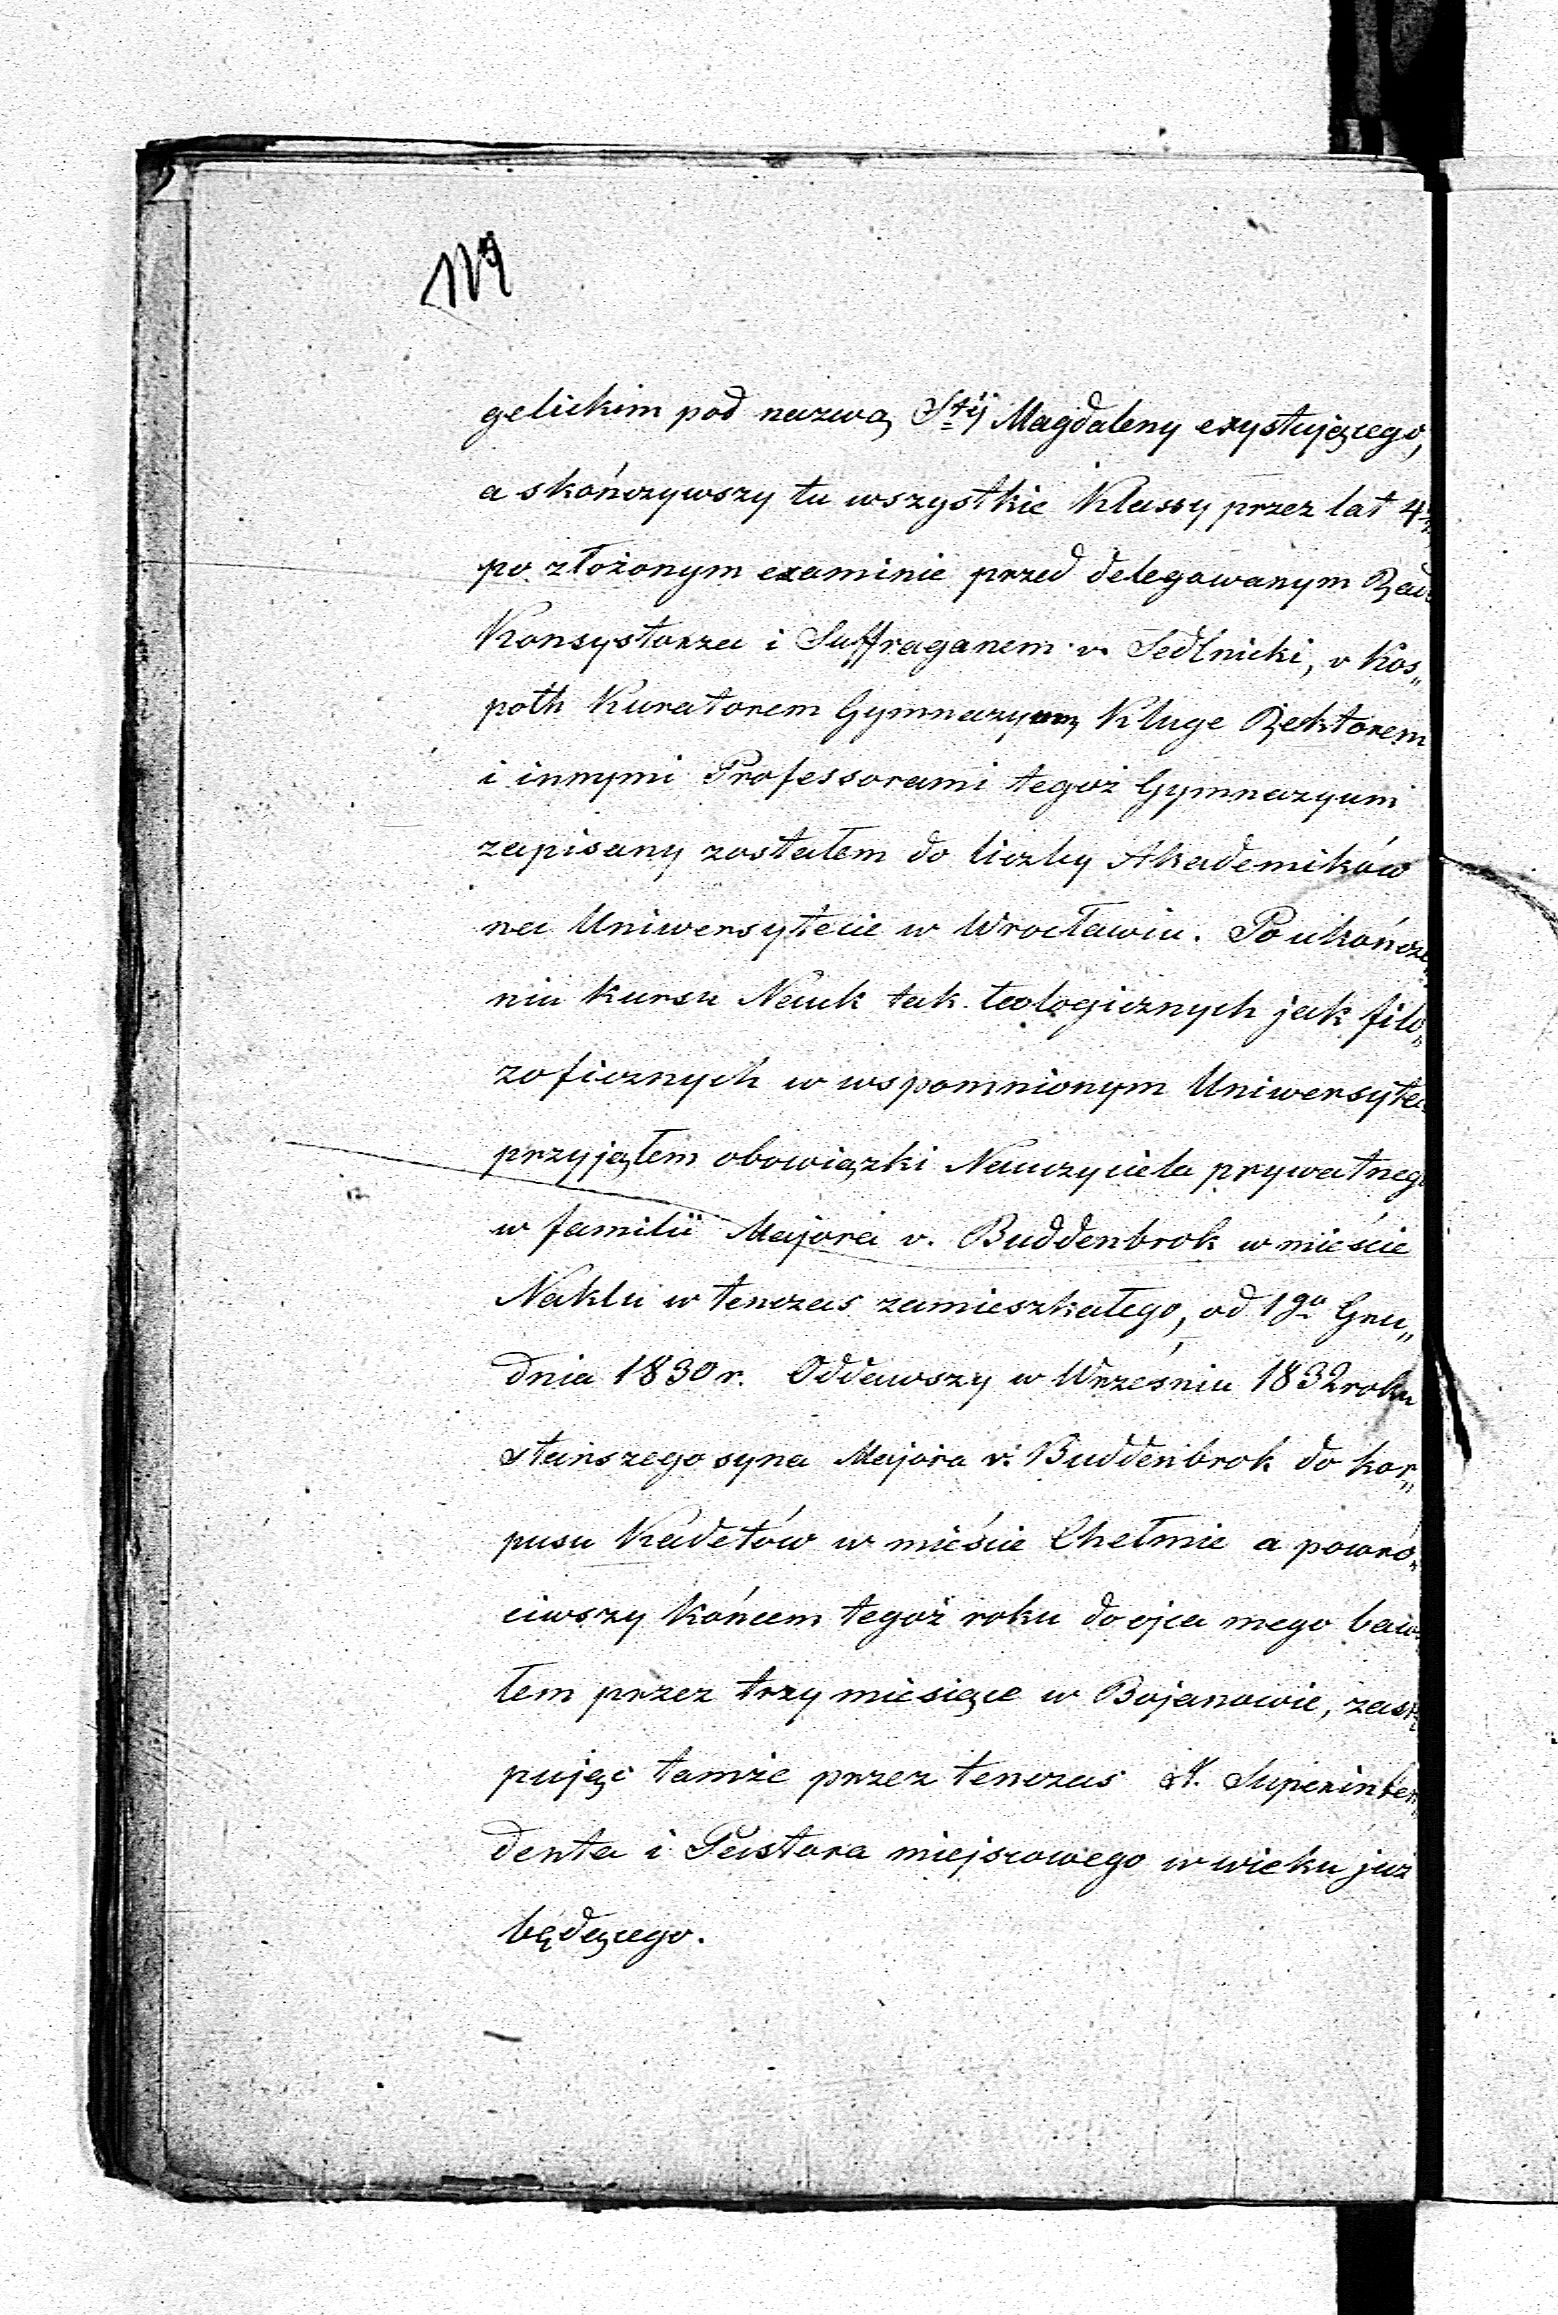 119
gelickim pod nazwą Stij Magdaleny exystującego,
a skończywszy tu wszystkie Klassy przez lat 4
po złożonym examinie przed delegowanym
Konsystorza i Suffraganem v. Sedlnicki, v Kos„
poth Kuratorem Gymnazyum, Kluge Rektorem
i innymi Professorami tegoż Gymnazyum
zapisany zostałem do liczby Akademików
na Uniwersytecie w Wrocławiu. Po ukończe
niu kursu Nauk tak teologicznych jak filo„
zoficznych w wspomnionym Uniwersytec
przyjąłem obowiązki Nauczyciela prywatnego
w familii Majora v. Buddenbrok w mieście
Naklu w tenczas zamieszkałego, od 1go Gru„
dnia 1830 r. Oddawszy w Wrześniu 1832 roku
starszego syna Majora v. Buddenbrok do kor„
pusu Kadetów w mieście Chełmie a powró„
ciwszy końcem tegoż roku do ojca mego bawi
łem przez trzy miesiące w Bojanowie, zastę
pując tamże przez tenczas St. Superinten
denta i Pastora miejscowego w wieku już
będącego.